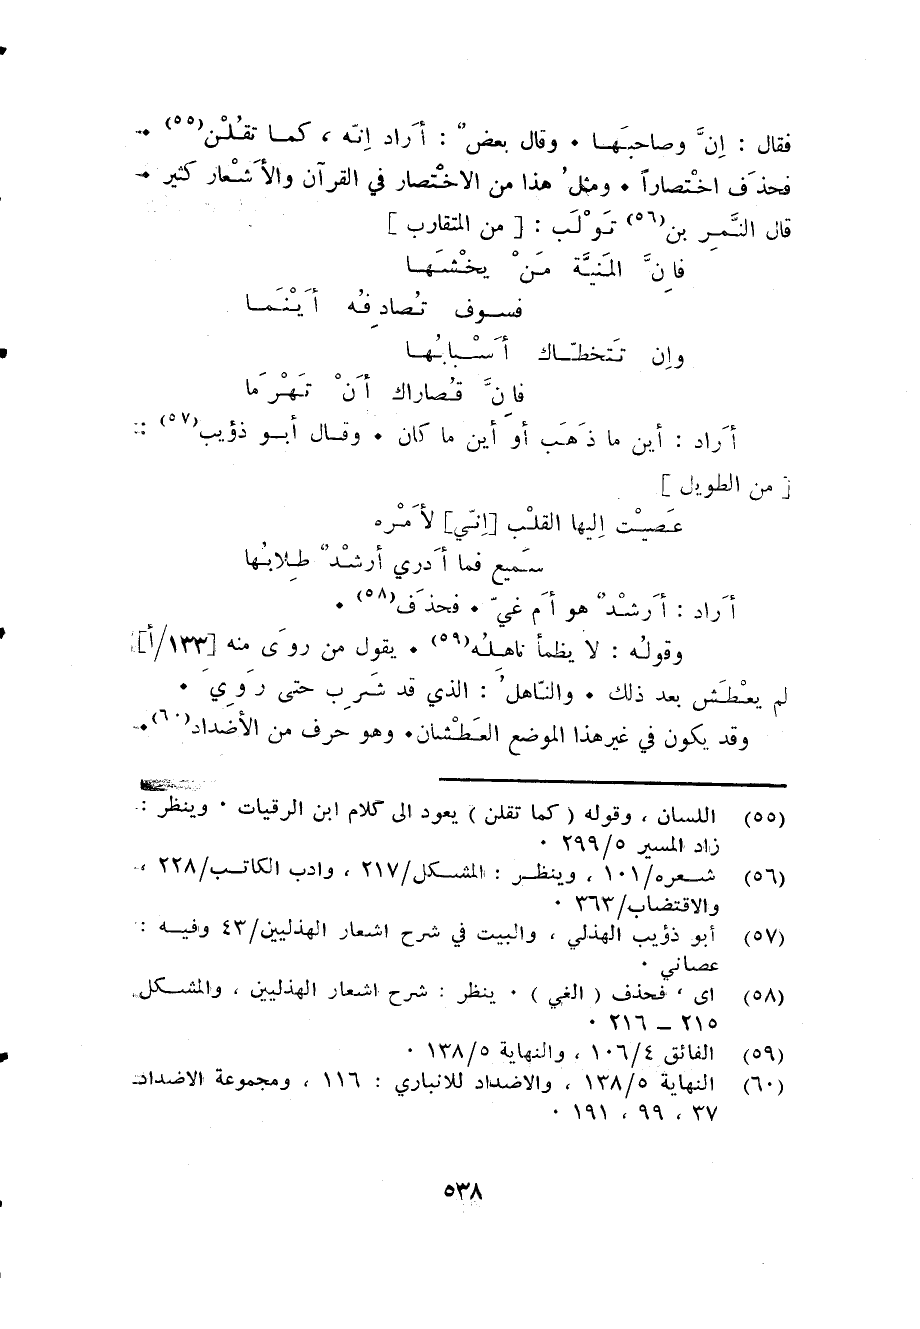 فقال : إنَّ وصاحبَها ٠ وقال بعضٌ : أَراد إنّه ، كما تقُلْن(٥٥) ٠
فحذَف اخْتصاراً ٠ ومثلُ هذا من الاخْتصار في القرآن والأَشعار كثير ٠
قال النَّمِر بن(٥٦) تَوْلَب : [ من المتقارب ]
فإنَّ المَنيَّة مَنْ يخْشَها
فسوف تُصادِفُه أَيْنَما
وإن تَتَخطّاك أَسْبابُها
فإنَّ قُصاراك أَنْ تَهْرَما
أَراد : أين ما ذَهَب أو أين ما كان ٠ وقال أبو ذؤيب(٥٧) :
[ من الطويل ]
عَصيْت إليها القلْب [إنّي] لأَمْره
سَميع فما أَدري أرشْدٌ طِلابُها
أَراد : أَرشْدٌ هو أَم غيّ ٠ فحذَف(٥٨) ٠
وقولُه : لا يظمأ ناهلُه(٥٩) ٠ يقول من روَى منه [١٣٣/أ]
لم يعْطَش بعد ذلك ٠ والنّاهلُ : الذي قد شَرِب حتى رَوِيَ ٠
وقد يكون في غيرهذا الموضع العَطْشان٠ وهو حرف من الأضداد(٦٠)٠
(٥٥) اللسان ، وقوله ( كما تقلن ) يعود الى كلام ابن الرقيات ٠ وينظر :
زاد المسير ٢٩٩/٥ ٠
(٥٦) شعره/١٠١ ، وينظر : المشكل/٢١٧ ، وادب الكاتب/٢٢٨ ،
والاقتضاب/٣٦٣ ٠
(٥٧) أبو ذؤيب الهذلي ، والبيت في شرح اشعار الهذليين/٤٣ وفيه :
عصاني ٠
(٥٨) اى ، فحذف ( الغي ) ٠ ينظر : شرح اشعار الهذليين ، والمشكل
٢١٥ ــ ٢١٦ ٠
(٥٩) الفائق ١٠٦/٤ ، والنهاية ١٣٨/٥ ٠
(٦٠) النهاية ١٣٨/٥ ، والاضداد للانباري : ١١٦ ، ومجموعة الاضداد
٣٧ ، ٩٩ ، ١٩١ ٠
٥٣٨